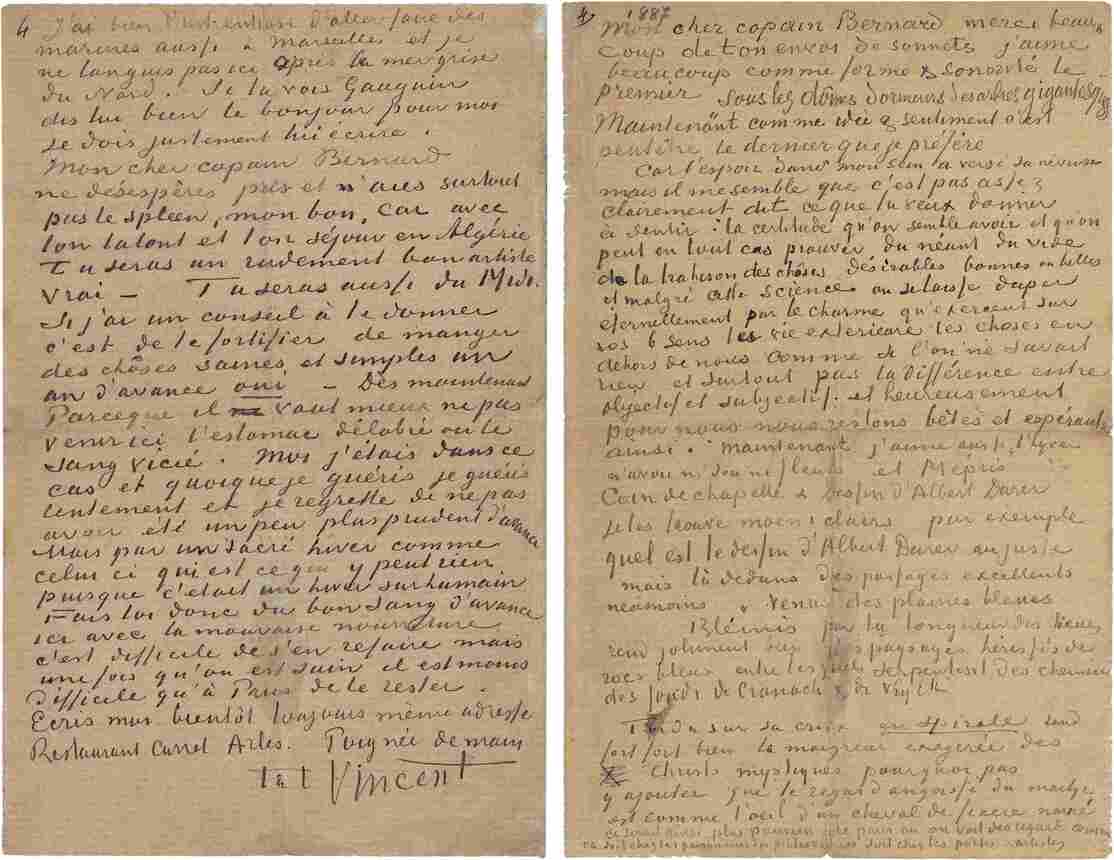 4 J'ai bien l'intention d'aller faire des
marines aussi à Marseilles et je
ne languis pas ici après la mer grise
du Nord. Si tu vois Gauguin
dis lui bien le bonjour pour moi
je dois justement lui écrire.
Mon cher copain Bernard
ne désespères pas et n'aies surtout
pas le spleen, mon bon, car avec
ton talent et ton séjour en Algérie
Tu seras un rudement bon artiste
vrai — Tu seras aussi du Midi.
Si j'ai un conseil à te donner
c'est de te fortifier de manger
des chôses saines et simples un
an d'avance oui — Dès maintenant
Parceque il vaut mieux ne pas
venir ici l'estomac délabré ou le
sang vicié. Moi j'étais dans ce
cas et quoique je guéris je guéris
lentement et je regrette de ne pas
avoir été un peu plus prudent d'avance
Mais par un sacré hiver comme
celui ci qui est ce qui y peut rien
puisque c'était un hiver surhumain
Fais toi donc du bon sang d'avance
ici avec la mauvaise nourriture
c'est difficile de s'en refaire mais
une fois qu'on est sain il est moins
difficile qu'à Paris de le rester.
Écris moi bientôt toujours même adresse
Restaurant Carrel Arles. Poignée de main
t à t Vincent
4 1887
Mon cher copain Bernard merci beau
coup de ton envoi de sonnets j'aime
beaucoup comme forme & sonorité le
premier Sous les dômes dormeurs des arbres gigantesques
Maintenant comme idée & sentiment c'est
peutêtre le dernier que je préfère
Car l'espoir dans mon sein a versé sa névrose
mais il me semble que c'est pas assez
clairement dit ce que tu veux donner
à sentir: la certitude qu'on semble avoir et qu'on
peut en tout cas prouver du néant du vide
de la trahison des chôses désirables bonnes ou belles
et malgré cette science on se laisse duper
éternellement par le charme qu'exercent sur
nos 6 sens la vie exterieure les choses en
dehors de nous comme si l'on ne savait
rien et surtout pas la différence entre
objectif et subjectif. et heureusement
pour nous nous restons bêtes et espérants
ainsi. Maintenant j'aime aussi l'hyver
n'avoir ni sou ni fleurs et Mépris
Coin de chapelle & Dessin d'Albert Durer
je les trouve moins clairs par exemple
quel est le dessin d'Albert Durer au juste
mais là dedans des passages excellents
néamoins. Venus des plaines bleues
Blémis par la longueur des lieues
rend joliment bien les paysages hérissés de
rocs bleus entre lesquels serpentent des chemins
des fonds de Cranach & de v Eyck
Tordu sur sa croix en spirale rend
fort fort bien la maigreur exagerée des
Christs mystiques pourquoi pas
y ajouter que le regard angoissé du martyr
est comme l'oeil d'un cheval de fiacre navré